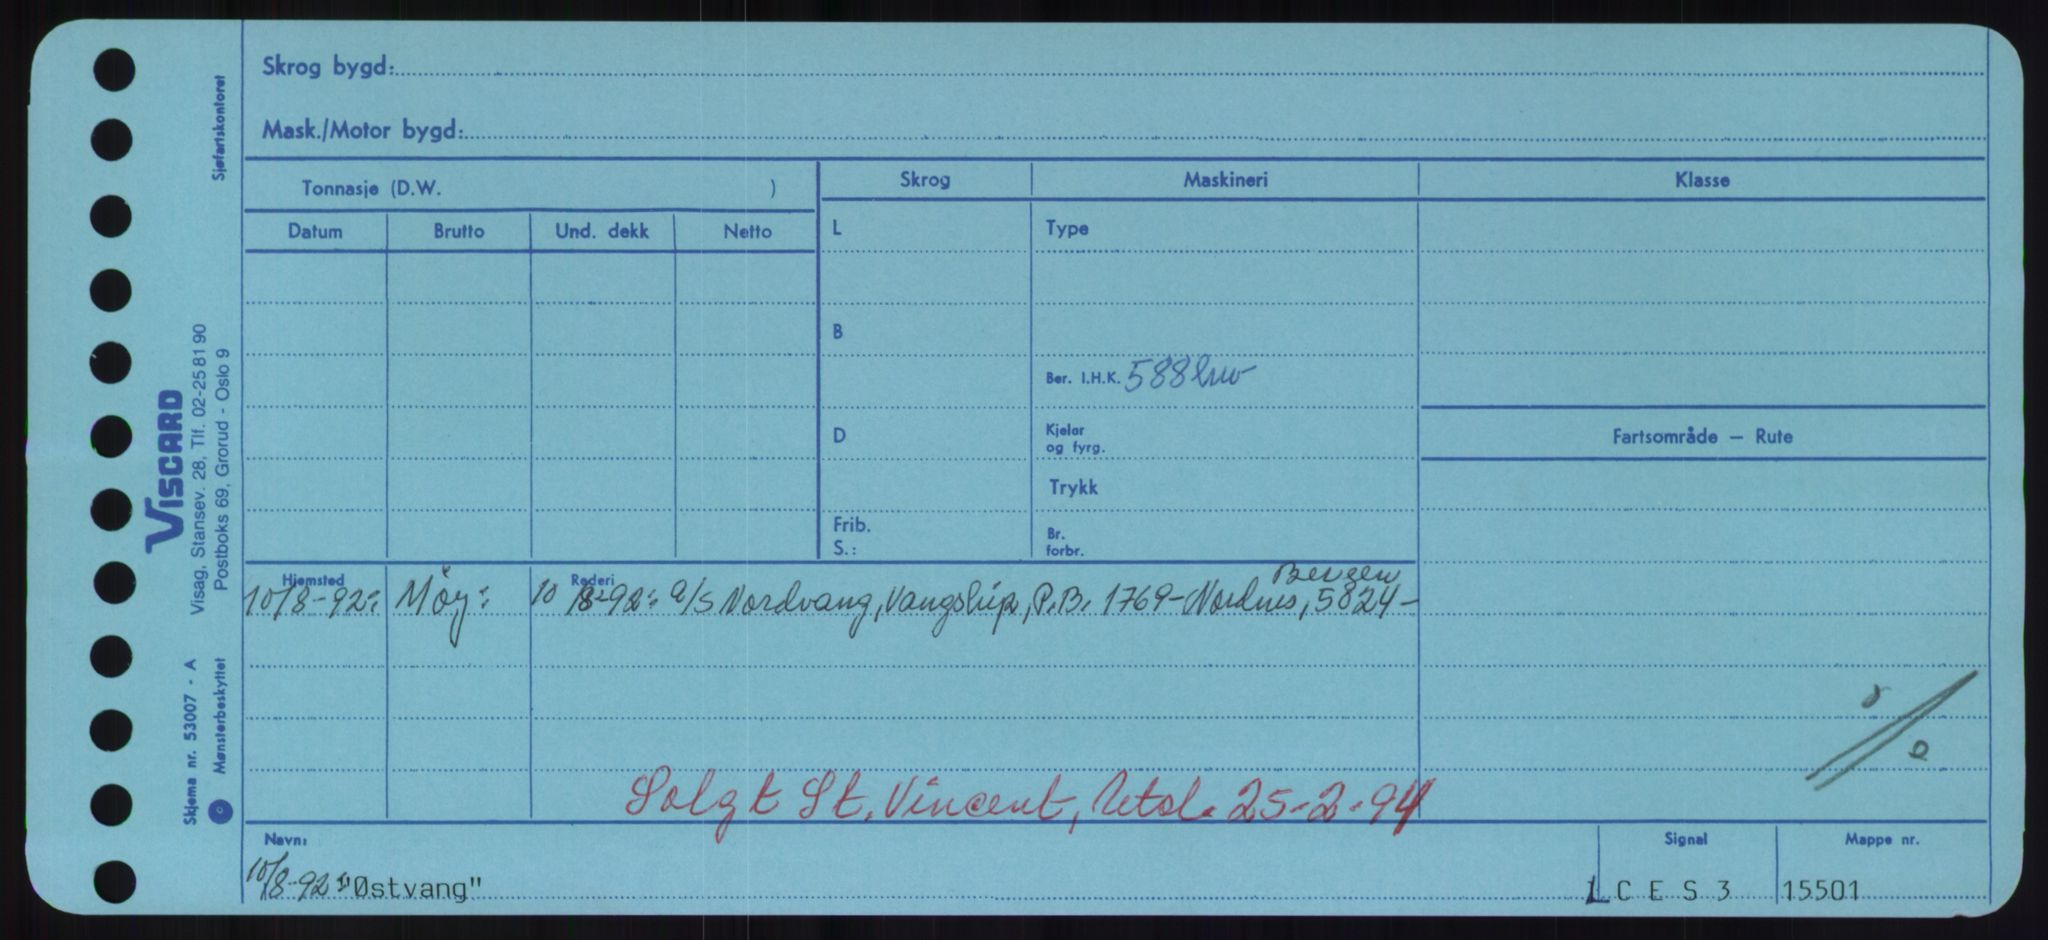 Skrog bygd:
Mask./Motor bygd:
Tonnasje (D.W. )
Skrog
Maskineri
Klasse
Datum
Brutto
Und. dekk
Netto
L
Type
B
Ber. I.H.K. 588 kw
D
Kjelar
og fyrg.
Fartsområde — Rute
Trykk
Frib.
S.:
Br.
forbr.
Hjemsted
Rederi
Bergen
10/8-92: Måy: 10/8-92: A/S Nordvang, Vangship, P.B. 1769-Nordnes, 5824-
Solgt St. Vincent, Utsl. 25-2-94
Navn:
Signal
Mappe nr.
10/8-92: "Østvang"
L C E S 3
15501
Sjøfartskontoret
VISCARD
Visag, Stansev. 28, Tlf. 02-25 81 90
Postboks 69, Grorud - Oslo 9
Skjema nr. 53007 - A
Mønsterbeskyttet